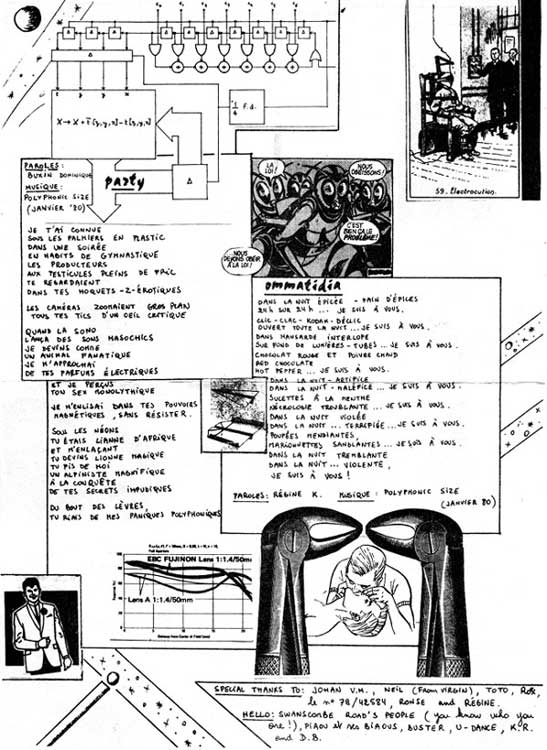 X → X + t[3,y,x] - t[3,y,x]
1/4 F.d.
Δ
Δ
59. Electrocution.
PAROLES :
BUXIN DOMINIQUE
MUSIQUE :
POLYPHONIC SIZE
(JANVIER '80)
party
JE T'AI CONNUE
SOUS LES PALMIERS EN PLASTIC
DANS UNE SOIRÉE
EN HABITS DE GYMNASTIQUE
LES PRODUCTEURS
AUX TESTICULES PLEINS DE FRIC
TE REGARDAIENT
DANS TES HOQUETS-Z-ÉROTIQUES
LES CAMÉRAS ZOOMAIENT GROS PLAN
TOUS TES TICS D'UN OEIL CRITIQUE
QUAND LA SONO
LANÇA DES SONS MASOCHICS
JE DEVINS COMME
UN ANIMAL FANATIQUE
JE M'APPROCHAI
DE TES PARFUMS ÉLECTRIQUES
ET JE PERÇUS
TON SEX MONOLYTHIQUE
JE M'ENLISAI DANS TES POUVOIRS
MAGNÉTIQUES, SANS RÉSISTER.
SOUS LES NÉONS
TU ÉTAIS LIANNE D'AFRIQUE
ET M'ENLAÇANT
TU DEVINS LIONNE MAGIQUE
TU FIS DE MOI
UN ALPINISTE MAGNIFIQUE
À LA CONQUÊTE
DE TES SECRETS IMPUDIQUES
DU BOUT DES LÈVRES,
TU RIAIS DE MES PANIQUES POLYPHONIQUES
LA LOI !
NOUS OBÉISSONS !
C'EST BIEN ÇA LE PROBLÈME !
NOUS DEVONS OBÉIR À LA LOI !
ommatidia
DANS LA NUIT ÉPICÉE - PAIN D'ÉPICES
24H SUR 24H ... JE SUIS À VOUS.
CLIC-CLAC-KODAK-DÉCLIC
OUVERT TOUTE LA NUIT ... JE SUIS À VOUS.
DANS MANSARDE INTERLOPE
SUR FOND DE LUMIÈRES-TUBES ... JE SUIS À VOUS.
CHOCOLAT ROUGE ET POIVRE CHAUD
RED CHOCOLATE
HOT PEPPER ... JE SUIS À VOUS.
DANS LA NUIT - ARTIFICE
DANS LA NUIT - MALÉFICE ... JE SUIS À VOUS.
SUCETTES À LA MENTHE
NÉCROLOGIE TROUBLANTE ... JE SUIS À VOUS.
DANS LA NUIT VIOLÉE
DANS LA NUIT ... TERRIFIÉE ... JE SUIS À VOUS.
POUPÉES MENDIANTES,
MARIONNETTES SANGLANTES ... JE SUIS À VOUS.
DANS LA NUIT TREMBLANTE
DANS LA NUIT ... VIOLENTE,
JE SUIS À VOUS !
PAROLES : RÉGINE K. MUSIQUE : POLYPHONIC SIZE
(JANVIER 80)
EBC FUJINON Lens 1:1.4/50mm
Lens A 1:1.4/50mm
SPECIAL THANKS TO : JOHAN V.H., NEIL (FROM VIRGIN), TOTO, ROB,
le n° 78/42584, RONSE and RÉGINE.
HELLO : SWANSCOMBE ROAD'S PEOPLE (you know who you
are !), PIAOU et ses BIAOUS, BUSTER, U-DANCE, K.R.
and D.B.